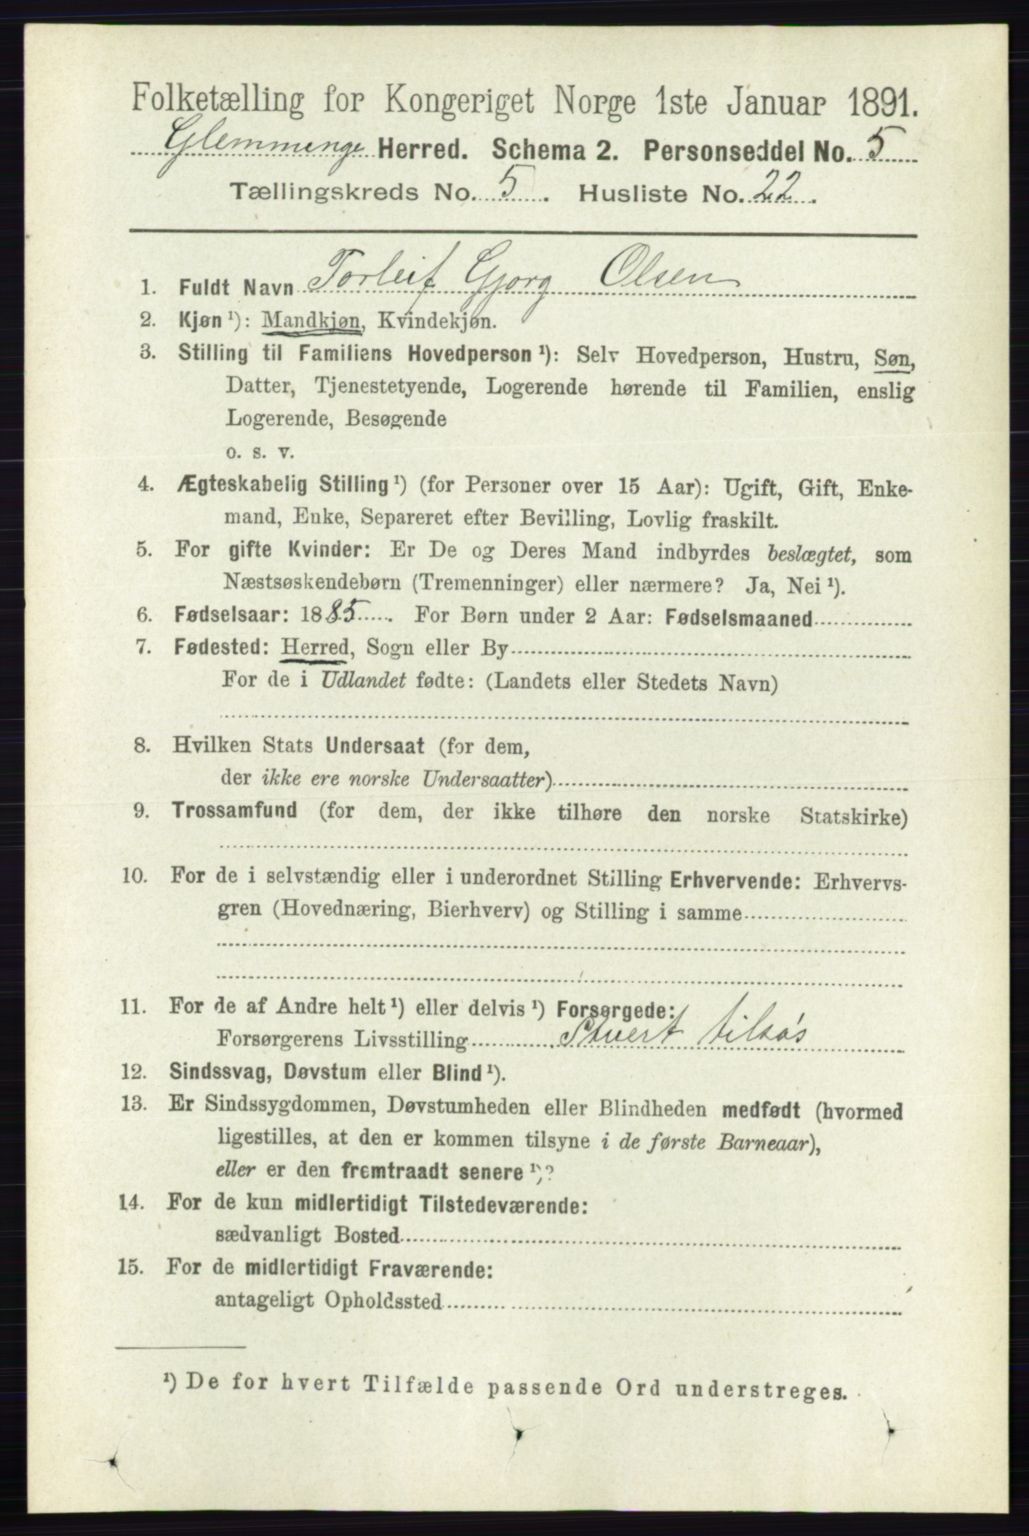 Folketælling for Kongeriget Norge 1ste Januar 1891.
Glemminge Herred. Schema 2. Personseddel No. 5
Tællingskreds No. 5. Husliste No. 22.
1. Fuldt Navn Torleif Gjorg Olsen
2. Kjøn¹): Mandkjøn, Kvindekjøn.
3. Stilling til Familiens Hovedperson¹): Selv Hovedperson, Hustru, Søn,
Datter, Tjenestetyende, Logerende hørende til Familien, enslig
Logerende, Besøgende
o. s. v.
4. Ægteskabelig Stilling¹) (for Personer over 15 Aar): Ugift, Gift, Enke-
mand, Enke, Separeret efter Bevilling, Lovlig fraskilt.
5. For gifte Kvinder: Er De og Deres Mand indbyrdes beslægtet, som
Næstsøskendebørn (Tremenninger) eller nærmere? Ja, Nei¹).
6. Fødselsaar: 1885. For Børn under 2 Aar: Fødselsmaaned
7. Fødested: Herred, Sogn eller By
For de i Udlandet fødte: (Landets eller Stedets Navn)
8. Hvilken Stats Undersaat (for dem,
der ikke ere norske Undersaatter)
9. Trossamfund (for dem, der ikke tilhøre den norske Statskirke)
10. For de i selvstændig eller i underordnet Stilling Erhvervende: Erhvervs-
gren (Hovednæring, Bierhverv) og Stilling i samme
11. For de af Andre helt¹) eller delvis¹) Forsørgede:
Forsørgerens Livsstilling Stuert tilsøs
12. Sindssvag, Døvstum eller Blind¹).
13. Er Sindssygdommen, Døvstumheden eller Blindheden medfødt (hvormed
ligestilles, at den er kommen tilsyne i de første Barneaar),
eller er den fremtraadt senere¹)?
14. For de kun midlertidigt Tilstedeværende:
sædvanligt Bosted
15. For de midlertidigt Fraværende:
antageligt Opholdssted
¹) De for hvert Tilfælde passende Ord understreges.